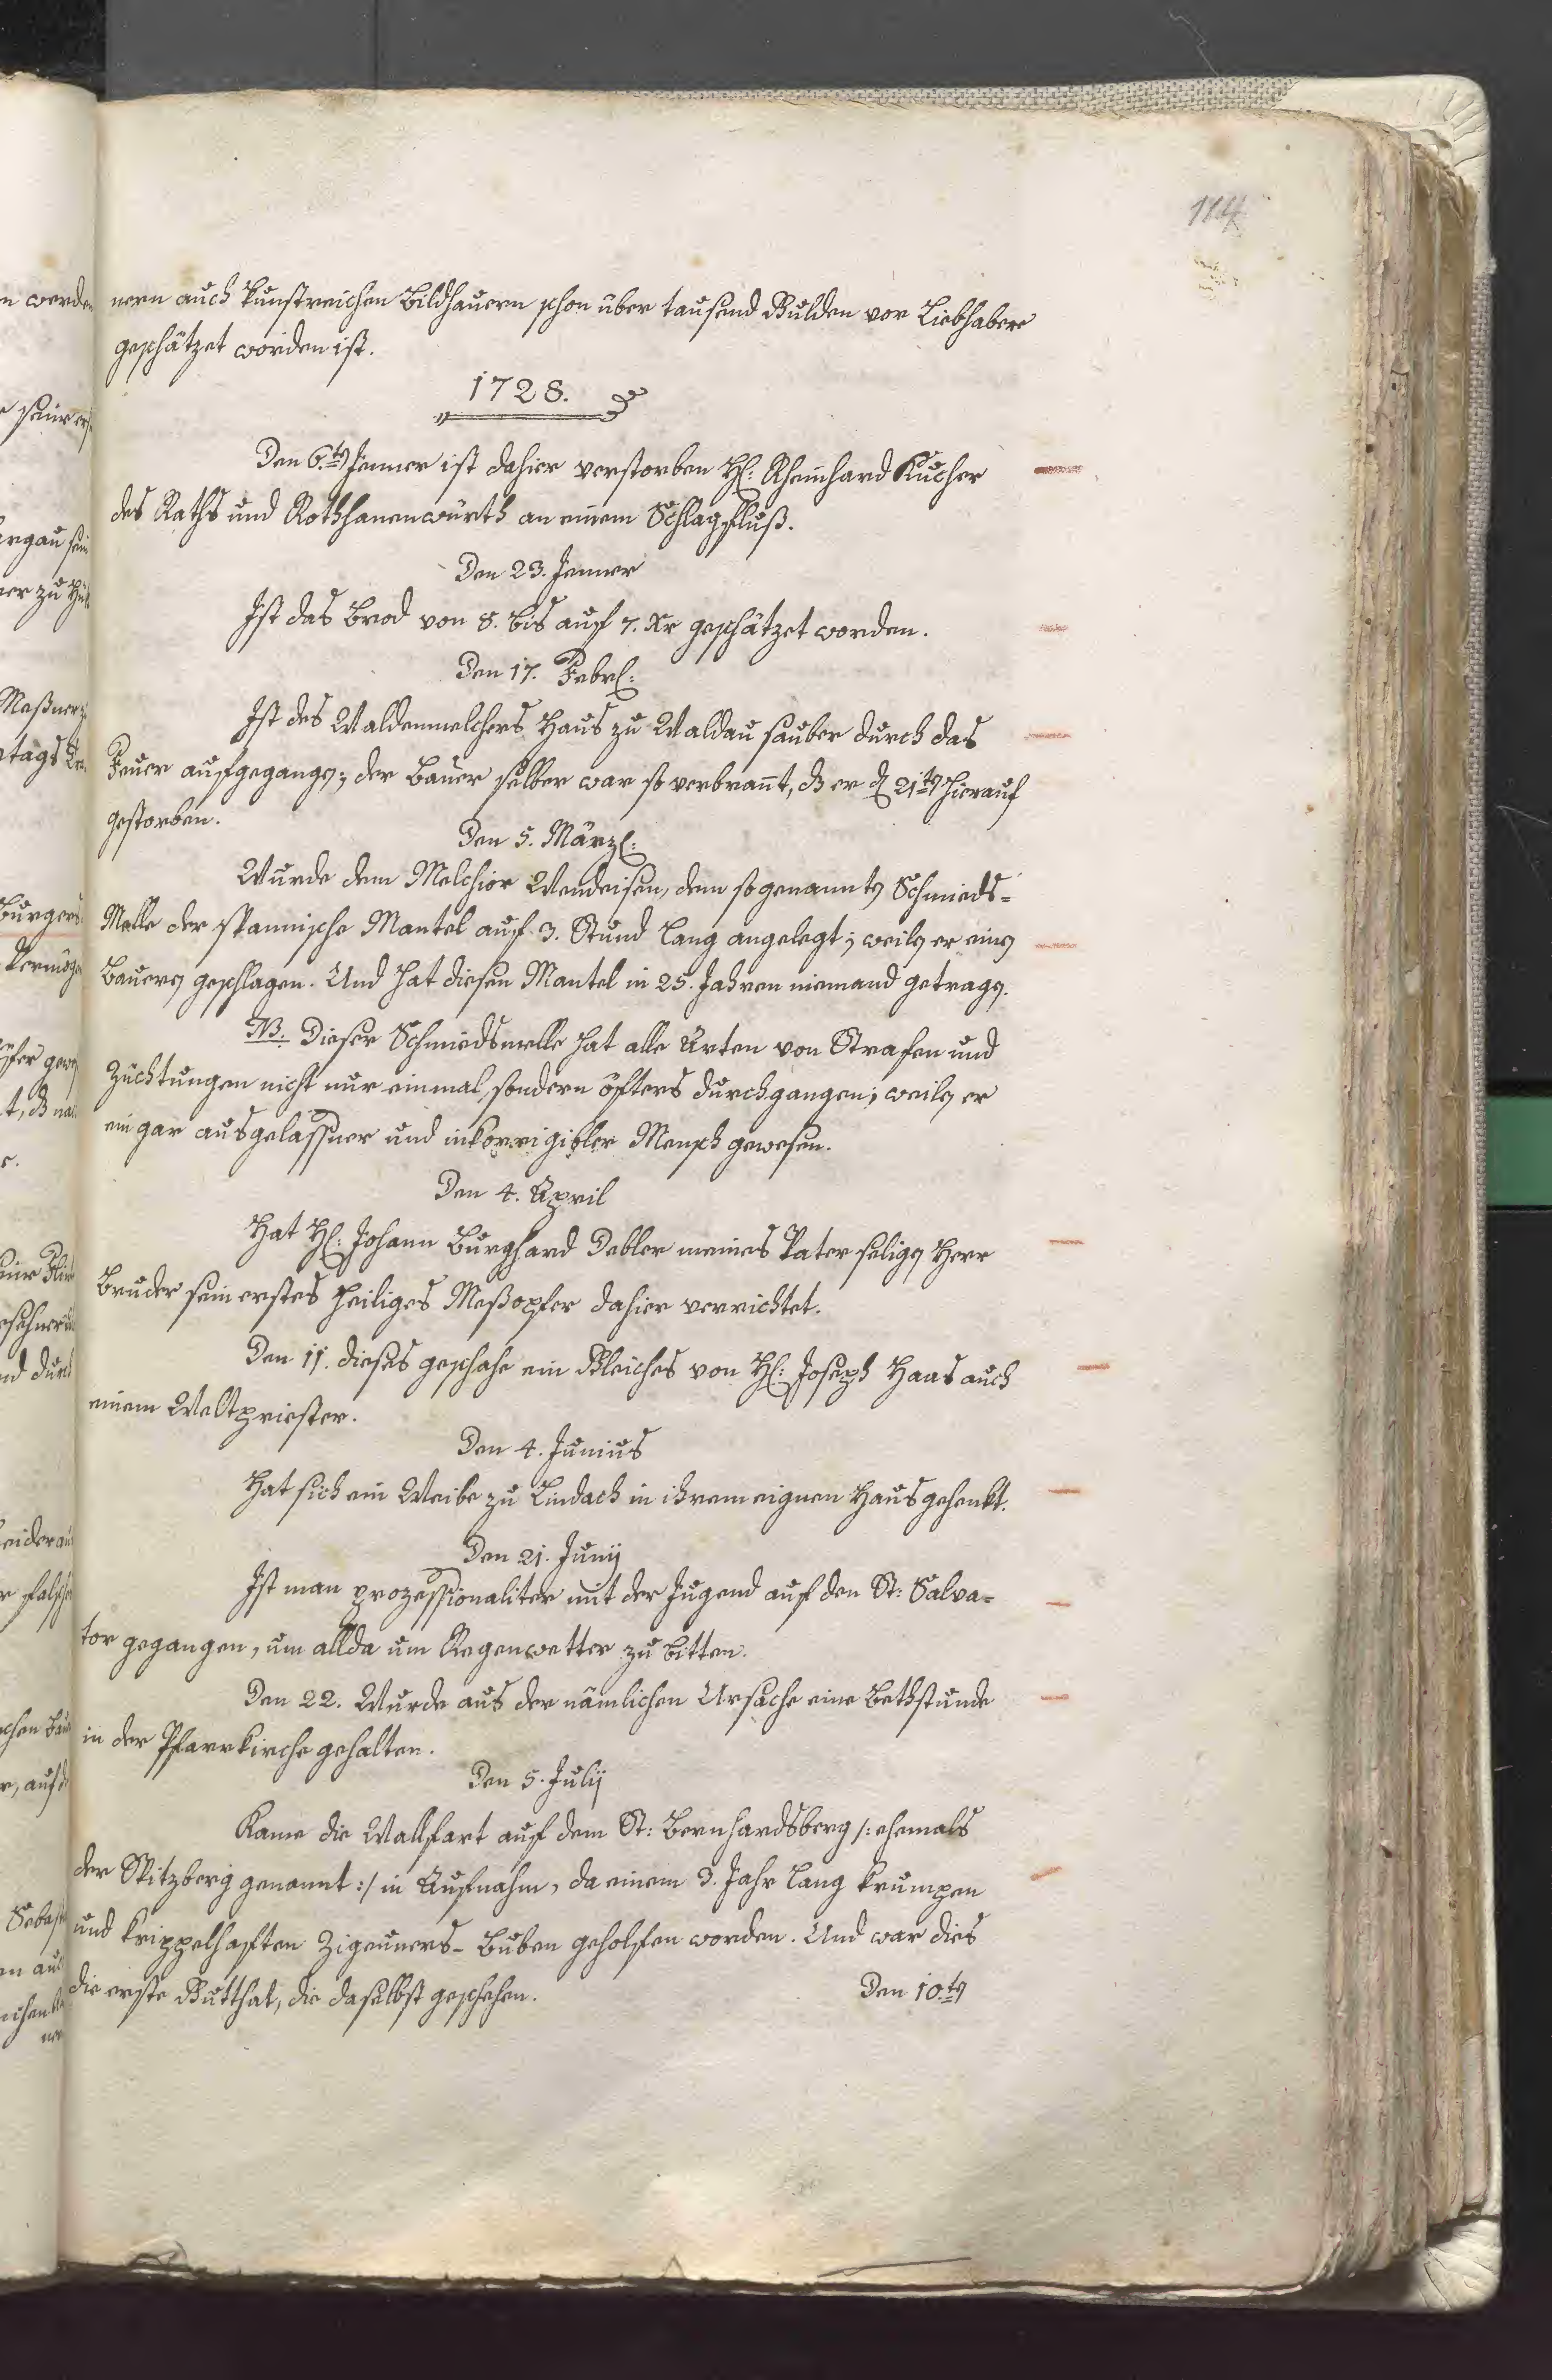 114
nern auch kunstreichen Bildhauern schon über tausend Gulden vor Liebhabere
geschätzet worden ist.
1728.
Den 6.ten Jenner ist dahier verstorben H: Rheinhard Kucher
des Raths und Rothhanenwürth an einem Schlagfluß.
Den 23. Jenner
Ist das Brod von 8. bis auf 7. Xr geschätzet worden.
Den 17. Febr:
Ist des Waldenmelchers Haus zu Waldau sauber durch das
Feuer aufgegangen; der Bauer selber war so verbrannt, dß er d 21ten hierauf
gestorben.
Den 5. März:
Wurde dem Melchior Wendeisen, dem sogenannten Schmieds-
Melle der spannische Mantel auf 3. Stund lang angelegt; weilen er einen
Bauern geschlagen. Und hat diesen Mantel in 25. Jahren niemand getragen.
NB. Dieser Schmiedsmelle hat alle Arten von Strafen und
Züchtungen nicht nur einmal, sondern öfters durchgangen; weilen er
ein gar ausgelassner und inkorrigibler Mensch gewesen.
Den 4. April
Hat H: Johann Burghard Debler meines Vater seligen Herr
Bruder sein erstes heiliges Meßopfer dahier verrichtet.
Den 11. dieses geschahe ein Gleiches von H: Joseph Haas auch
einem Weltpriester.
Den 4. Junius
Hat sich ein Weibe zu Lindach in ihrem eignen Haus gehenkt.
Den 21. Junij
Ist man prozessionaliter mit der Jugend auf den St: Salva-
tor gegangen, um allda um Regenwetter zu bitten.
Den 22. Wurde aus der nämlichen Ursache eine Bethstunde
in der Pfarrkirche gehalten.
Den 5. Julij
Kame die Wallfart auf dem St: Bernhardsberg /: ehemals
der Spitzberg genannt :/ in Aufnahm, da einem 3. Jahr lang krumpen
und krippelhaften Zigeuners-Buben geholfen worden. Und war dies
die erste Gutthat, die daselbst geschehen.
Den 10.ten